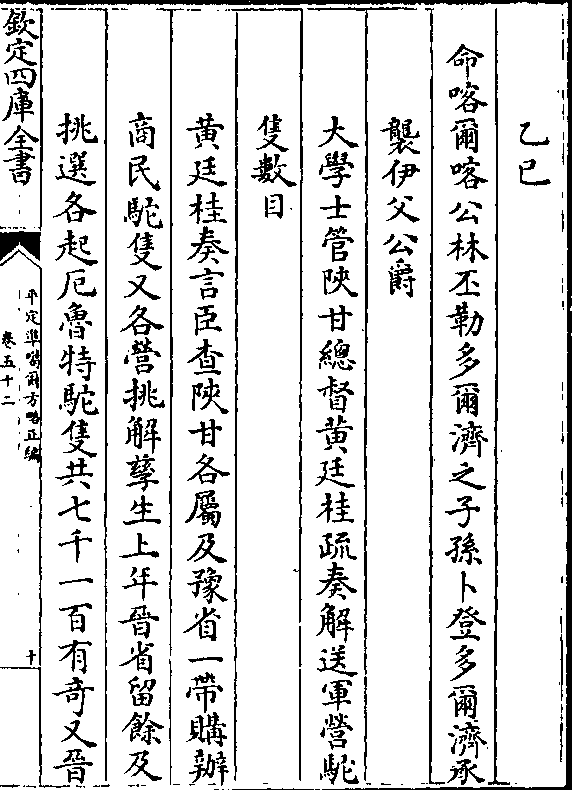 乙巳
命喀爾喀公林丕勒多爾濟之子孫卜登多爾濟承
襲伊父公爵
大學士管陝甘總督黄廷桂疏奏解送軍營駝
隻數目
黄廷桂奏言臣查陝甘各屬及豫省一帶購辦
商民駝隻又各營挑解孳生上年晉省留餘及
挑選各起厄魯特駝隻共七千一百有奇又晉
欽定四庫全書
平定準噶爾方略正編
卷五十二
十